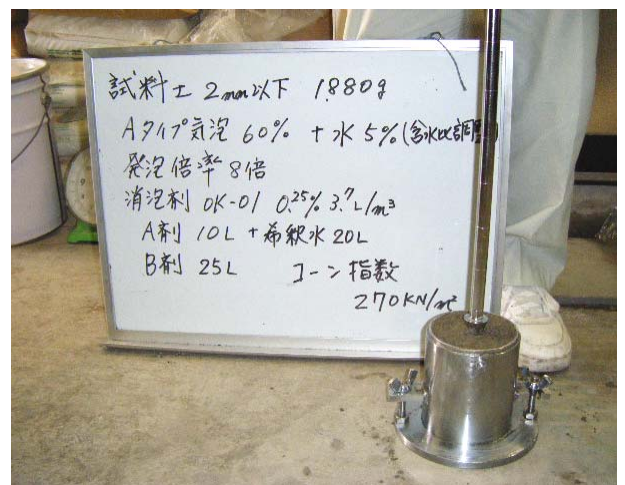 試料土 2mm以下 1.880g
Aタイプ気泡 60% + 水 5% (含水比調整)
発泡倍率 8倍
消泡剤 OK-01 0.25% 3.7L/m³
A剤 10L + 希釈水 20L
B剤 25L コーン指数
270KN/m²